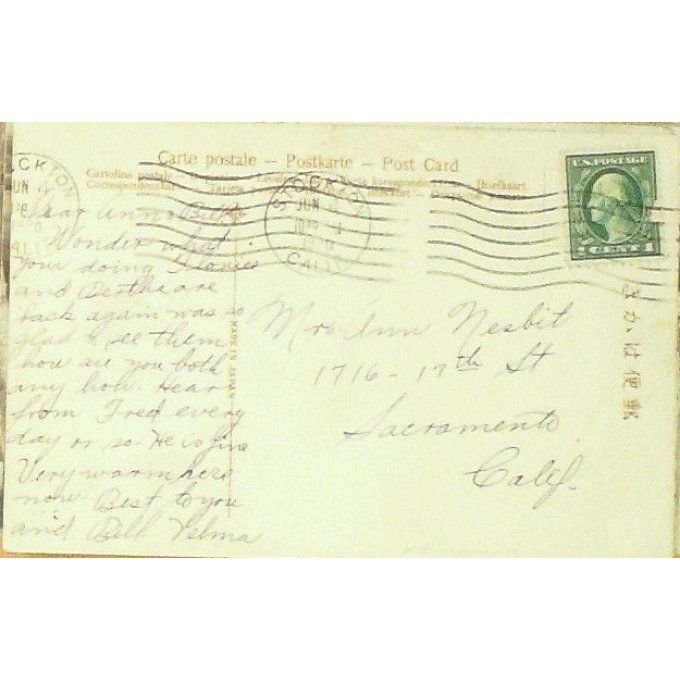 Carte postale – Postkarte – Post Card
Cartolina postale
STOCKTON
JUN
CALIF
U.S. POSTAGE
CENT 1
Dear Ann & Bill
Wonder what
your doing
and Bertha are
back again was so
glad to see them
how are you both
any how. Hear
from Fred every
day or so. He is fine
Very warm here
now. Best to you
and Bill Velma
MADE IN JAPAN
Mrs Ann Nesbit
1716 - 17th St
Sacramento
Calif.
きかは便郵